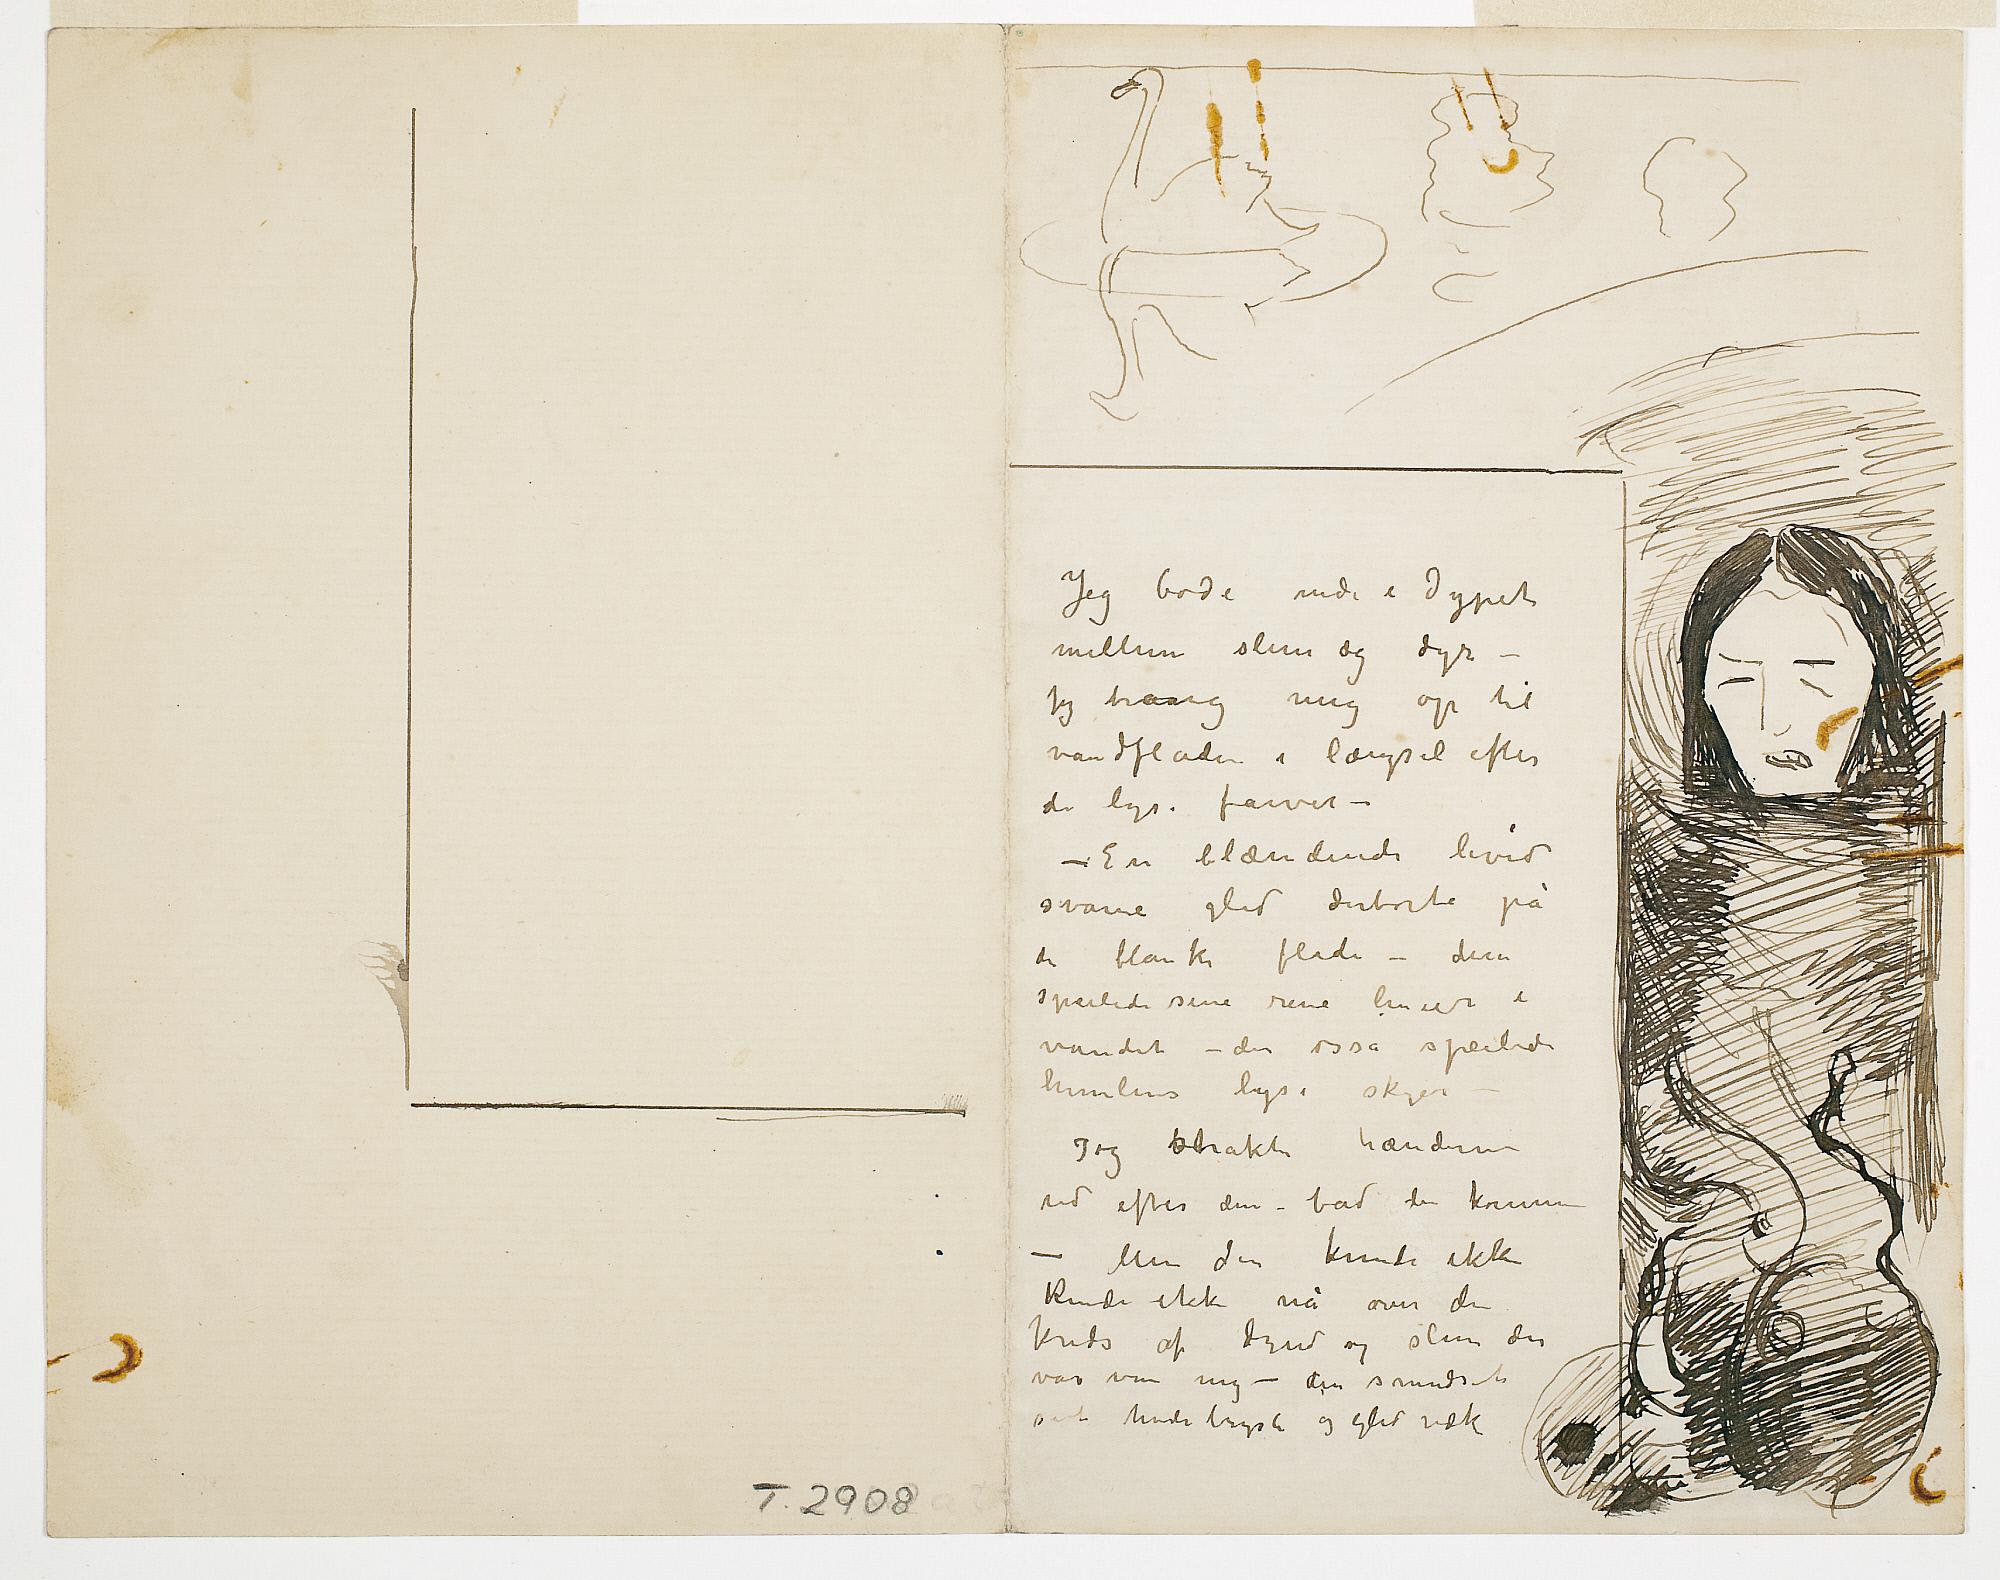 Jeg bode nede i Dypet
mellem slim og dyr –
Jeg trang mig op til
vandfladen i længsel efter
de lyse farver –
– En blændende hvid
svane gled derborte på
de blanke flade – den
speilede sine rene linier i
vandet – der osså speilede
himlens lyse skyer –
Jeg strakte hænderne
ud efter den – bad den komme
– Men den kunde ikke
kunde ikke nå over den
kreds af dynd og slim der
var om mig – den smudset
sit hvide bryst og gled væk
T. 2908